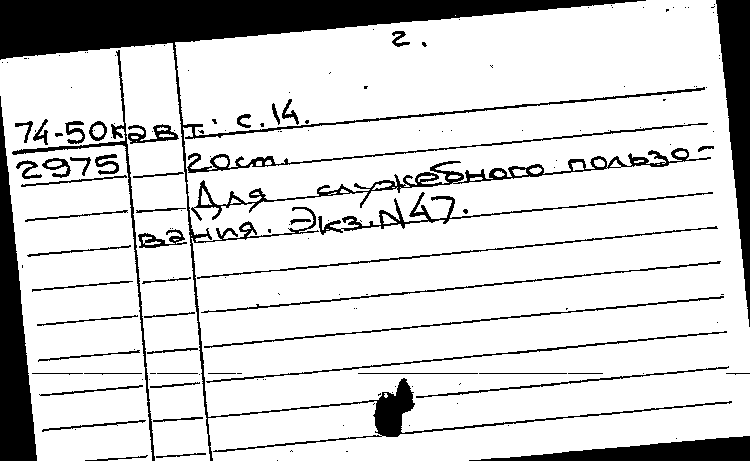 2.
74-50кавт.: с.14.
2975 20см.
Для служебного пользо-
вания. Экз.N47.